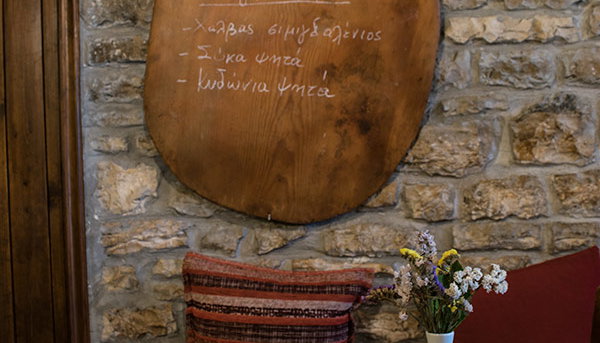 - Χαλβας σιμιγδαλένιος
- Σύκα ψητά
- Κυδώνια ψητά